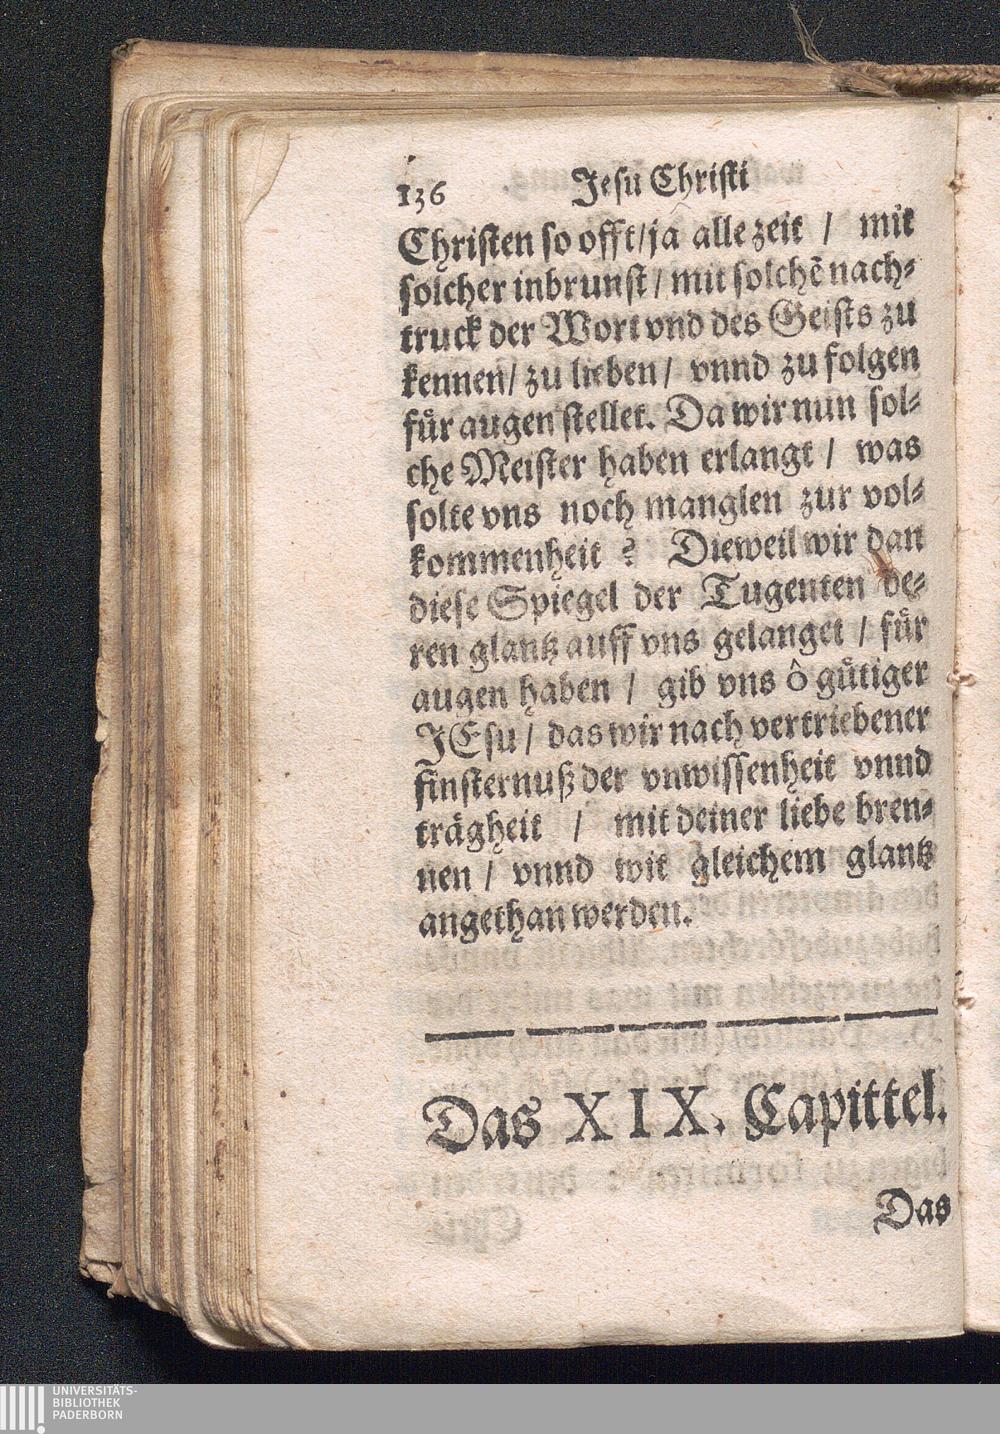 136 Jesu Christi
Christen so offt/ja alle zeit / mit
solcher inbrunst / mit solchē nach⸗
truck der Wort vnd des Geists zu
kennen/ zu lieben / vnnd zu folgen
fuͤr augen stellet. Da wir nun sol⸗
che Meister haben erlangt / was
solte vns noch manglen zur vol⸗
kommenheit ? Dieweil wir dan
diese Spiegel der Tugenten de⸗
ren glantz auff vns gelanget / fuͤr
augen haben / gib vns ô guͤtiger
JEsu / das wir nach vertriebener
finsternuß der vnwissenheit vnnd
traͤgheit / mit deiner liebe bren⸗
nen / vnnd wit gleichem glantz
angethan werden.
Das XIX. Capittel.
Das
UNIVERSITÄTS-
BIBLIOTHEK
PADERBORN